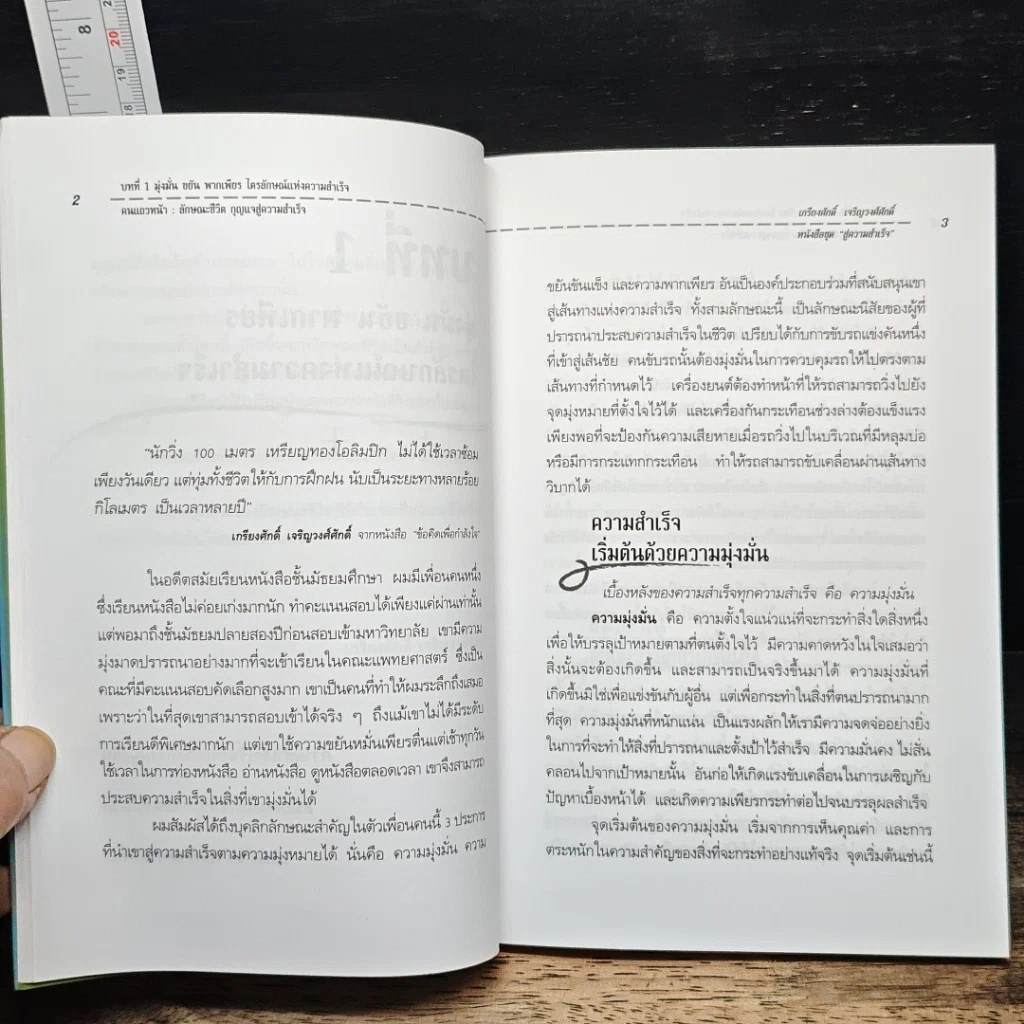 8
20
19
18
2
บทที่ 1 มุ่งมั่น ขยัน พากเพียร ไตรลักษณ์แห่งความสำเร็จ
คนแถวหน้า : ลักษณะชีวิต กุญแจสู่ความสำเร็จ
"นักวิ่ง 100 เมตร เหรียญทองโอลิมปิก ไม่ได้ใช้เวลาซ้อม
เพียงวันเดียว แต่ทุ่มทั้งชีวิตให้กับการฝึกฝน นับเป็นระยะทางหลายร้อย
กิโลเมตร เป็นเวลาหลายปี"
เกรียงศักดิ์ เจริญวงศ์ศักดิ์ จากหนังสือ "ข้อคิดเพื่อกำลังใจ"
ในอดีตสมัยเรียนหนังสือชั้นมัธยมศึกษา ผมมีเพื่อนคนหนึ่ง
ซึ่งเรียนหนังสือไม่ค่อยเก่งมากนัก ทำคะแนนสอบได้เพียงแค่ผ่านเท่านั้น
แต่พอมาถึงชั้นมัธยมปลายสองปีก่อนสอบเข้ามหาวิทยาลัย เขามีความ
มุ่งมาดปรารถนาอย่างมากที่จะเข้าเรียนในคณะแพทยศาสตร์ ซึ่งเป็น
คณะที่มีคะแนนสอบคัดเลือกสูงมาก เขาเป็นคนที่ทำให้ผมระลึกถึงเสมอ
เพราะว่าในที่สุดเขาสามารถสอบเข้าได้จริง ๆ ถึงแม้เขาไม่ได้มีระดับ
การเรียนดีพิเศษมากนัก แต่เขาใช้ความขยันหมั่นเพียรตื่นแต่เช้าทุกวัน
ใช้เวลาในการท่องหนังสือ อ่านหนังสือ ดูหนังสือตลอดเวลา เขาจึงสามารถ
ประสบความสำเร็จในสิ่งที่เขามุ่งมั่นได้
ผมสัมผัสได้ถึงบุคลิกลักษณะสำคัญในตัวเพื่อนคนนี้ 3 ประการ
ที่นำเขาสู่ความสำเร็จตามความมุ่งหมายได้ นั่นคือ ความมุ่งมั่น ความ
เกรียงศักดิ์ เจริญวงศ์ศักดิ์
หนังสือชุด "สู่ความสำเร็จ"
3
ขยันขันแข็ง และความพากเพียร อันเป็นองค์ประกอบร่วมที่สนับสนุนเขา
สู่เส้นทางแห่งความสำเร็จ ทั้งสามลักษณะนี้ เป็นลักษณะนิสัยของผู้ที่
ปรารถนาประสบความสำเร็จในชีวิต เปรียบได้กับการขับรถแข่งคันหนึ่ง
ที่เข้าสู่เส้นชัย คนขับรถนั้นต้องมุ่งมั่นในการควบคุมรถให้ไปตรงตาม
เส้นทางที่กำหนดไว้ เครื่องยนต์ต้องทำหน้าที่ให้รถสามารถวิ่งไปยัง
จุดมุ่งหมายที่ตั้งใจไว้ได้ และเครื่องกันกระเทือนช่วงล่างต้องแข็งแรง
เพียงพอที่จะป้องกันความเสียหายเมื่อรถวิ่งไปในบริเวณที่มีหลุมบ่อ
หรือมีการกระแทกกระเทือน ทำให้รถสามารถขับเคลื่อนผ่านเส้นทาง
วิบากได้
ความสำเร็จ
เริ่มต้นด้วยความมุ่งมั่น
เบื้องหลังของความสำเร็จทุกความสำเร็จ คือ ความมุ่งมั่น
ความมุ่งมั่น คือ ความตั้งใจแน่วแน่ที่จะกระทำสิ่งใดสิ่งหนึ่ง
เพื่อให้บรรลุเป้าหมายตามที่ตนตั้งใจไว้ มีความคาดหวังในใจเสมอว่า
สิ่งนั้นจะต้องเกิดขึ้น และสามารถเป็นจริงขึ้นมาได้ ความมุ่งมั่นที่
เกิดขึ้นมิใช่เพื่อแข่งขันกับผู้อื่น แต่เพื่อกระทำในสิ่งที่ตนปรารถนามาก
ที่สุด ความมุ่งมั่นที่หนักแน่น เป็นแรงผลักให้เรามีความจดจ่ออย่างยิ่ง
ในการที่จะทำให้สิ่งที่ปรารถนาและตั้งเป้าไว้สำเร็จ มีความมั่นคง ไม่สั่น
คลอนไปจากเป้าหมายนั้น อันก่อให้เกิดแรงขับเคลื่อนในการเผชิญกับ
ปัญหาเบื้องหน้าได้ และเกิดความเพียรกระทำต่อไปจนบรรลุผลสำเร็จ
จุดเริ่มต้นของความมุ่งมั่น เริ่มจากการเห็นคุณค่า และการ
ตระหนักในความสำคัญของสิ่งที่จะกระทำอย่างแท้จริง จุดเริ่มต้นเช่นนี้